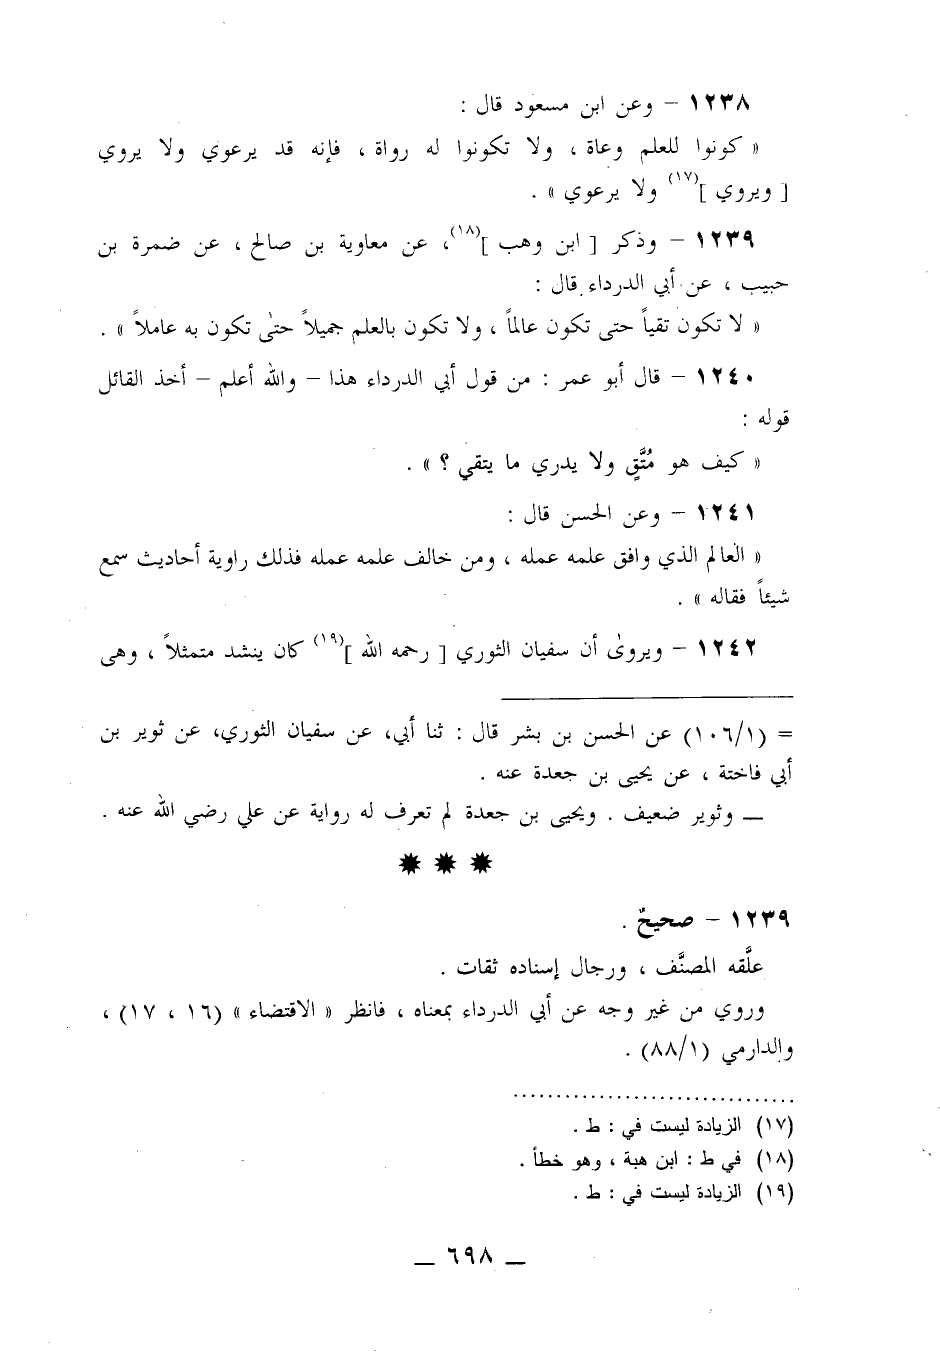 ١٢٣٨ – وعن ابن مسعود قال :
« كونوا للعلم وعاة ، ولا تكونوا له رواة ، فإنه قد يرعوي ولا يروي
[ ويروي ](١٧) ولا يرعوي » .
١٢٣٩ – وذكر [ ابن وهب ](١٨)، عن معاوية بن صالح ، عن ضمرة بن
حبيب ، عن أبي الدرداء قال :
« لا تكون تقياً حتى تكون عالماً ، ولا تكون بالعلم جميلاً حتىٰ تكون به عاملاً » .
١٢٤٠ – قال أبو عمر : من قول أبي الدرداء هذا – والله أعلم – أخذ القائل
قوله :
« كيف هو مُتَّقٍ ولا يدري ما يتقي ؟ » .
١٢٤١ – وعن الحسن قال :
« العالم الذي وافق علمه عمله ، ومن خالف علمه عمله فذلك راوية أحاديث سمع
شيئاً فقاله » .
١٢٤٢ – ويروىٰ أن سفيان الثوري [ رحمه الله ](١٩) كان ينشد متمثلاً ، وهى
= (١٠٦/١) عن الحسن بن بشر قال : ثنا أبي، عن سفيان الثوري، عن ثوير بن
أبي فاختة ، عن يحيى بن جعدة عنه .
— وثوير ضعيف . ويحيى بن جعدة لم تعرف له رواية عن علي رضي الله عنه .
١٢٣٩ – صحيحٌ .
علَّقه المصنَّف ، ورجال إسناده ثقات .
وروي من غير وجه عن أبي الدرداء بمعناه ، فانظر « الاقتضاء » (١٦ ، ١٧) ،
والدارمي (٨٨/١) .
(١٧) الزيادة ليست في : ط .
(١٨) في ط : ابن هبة ، وهو خطأ .
(١٩) الزيادة ليست في : ط .
— ٦٩٨ —